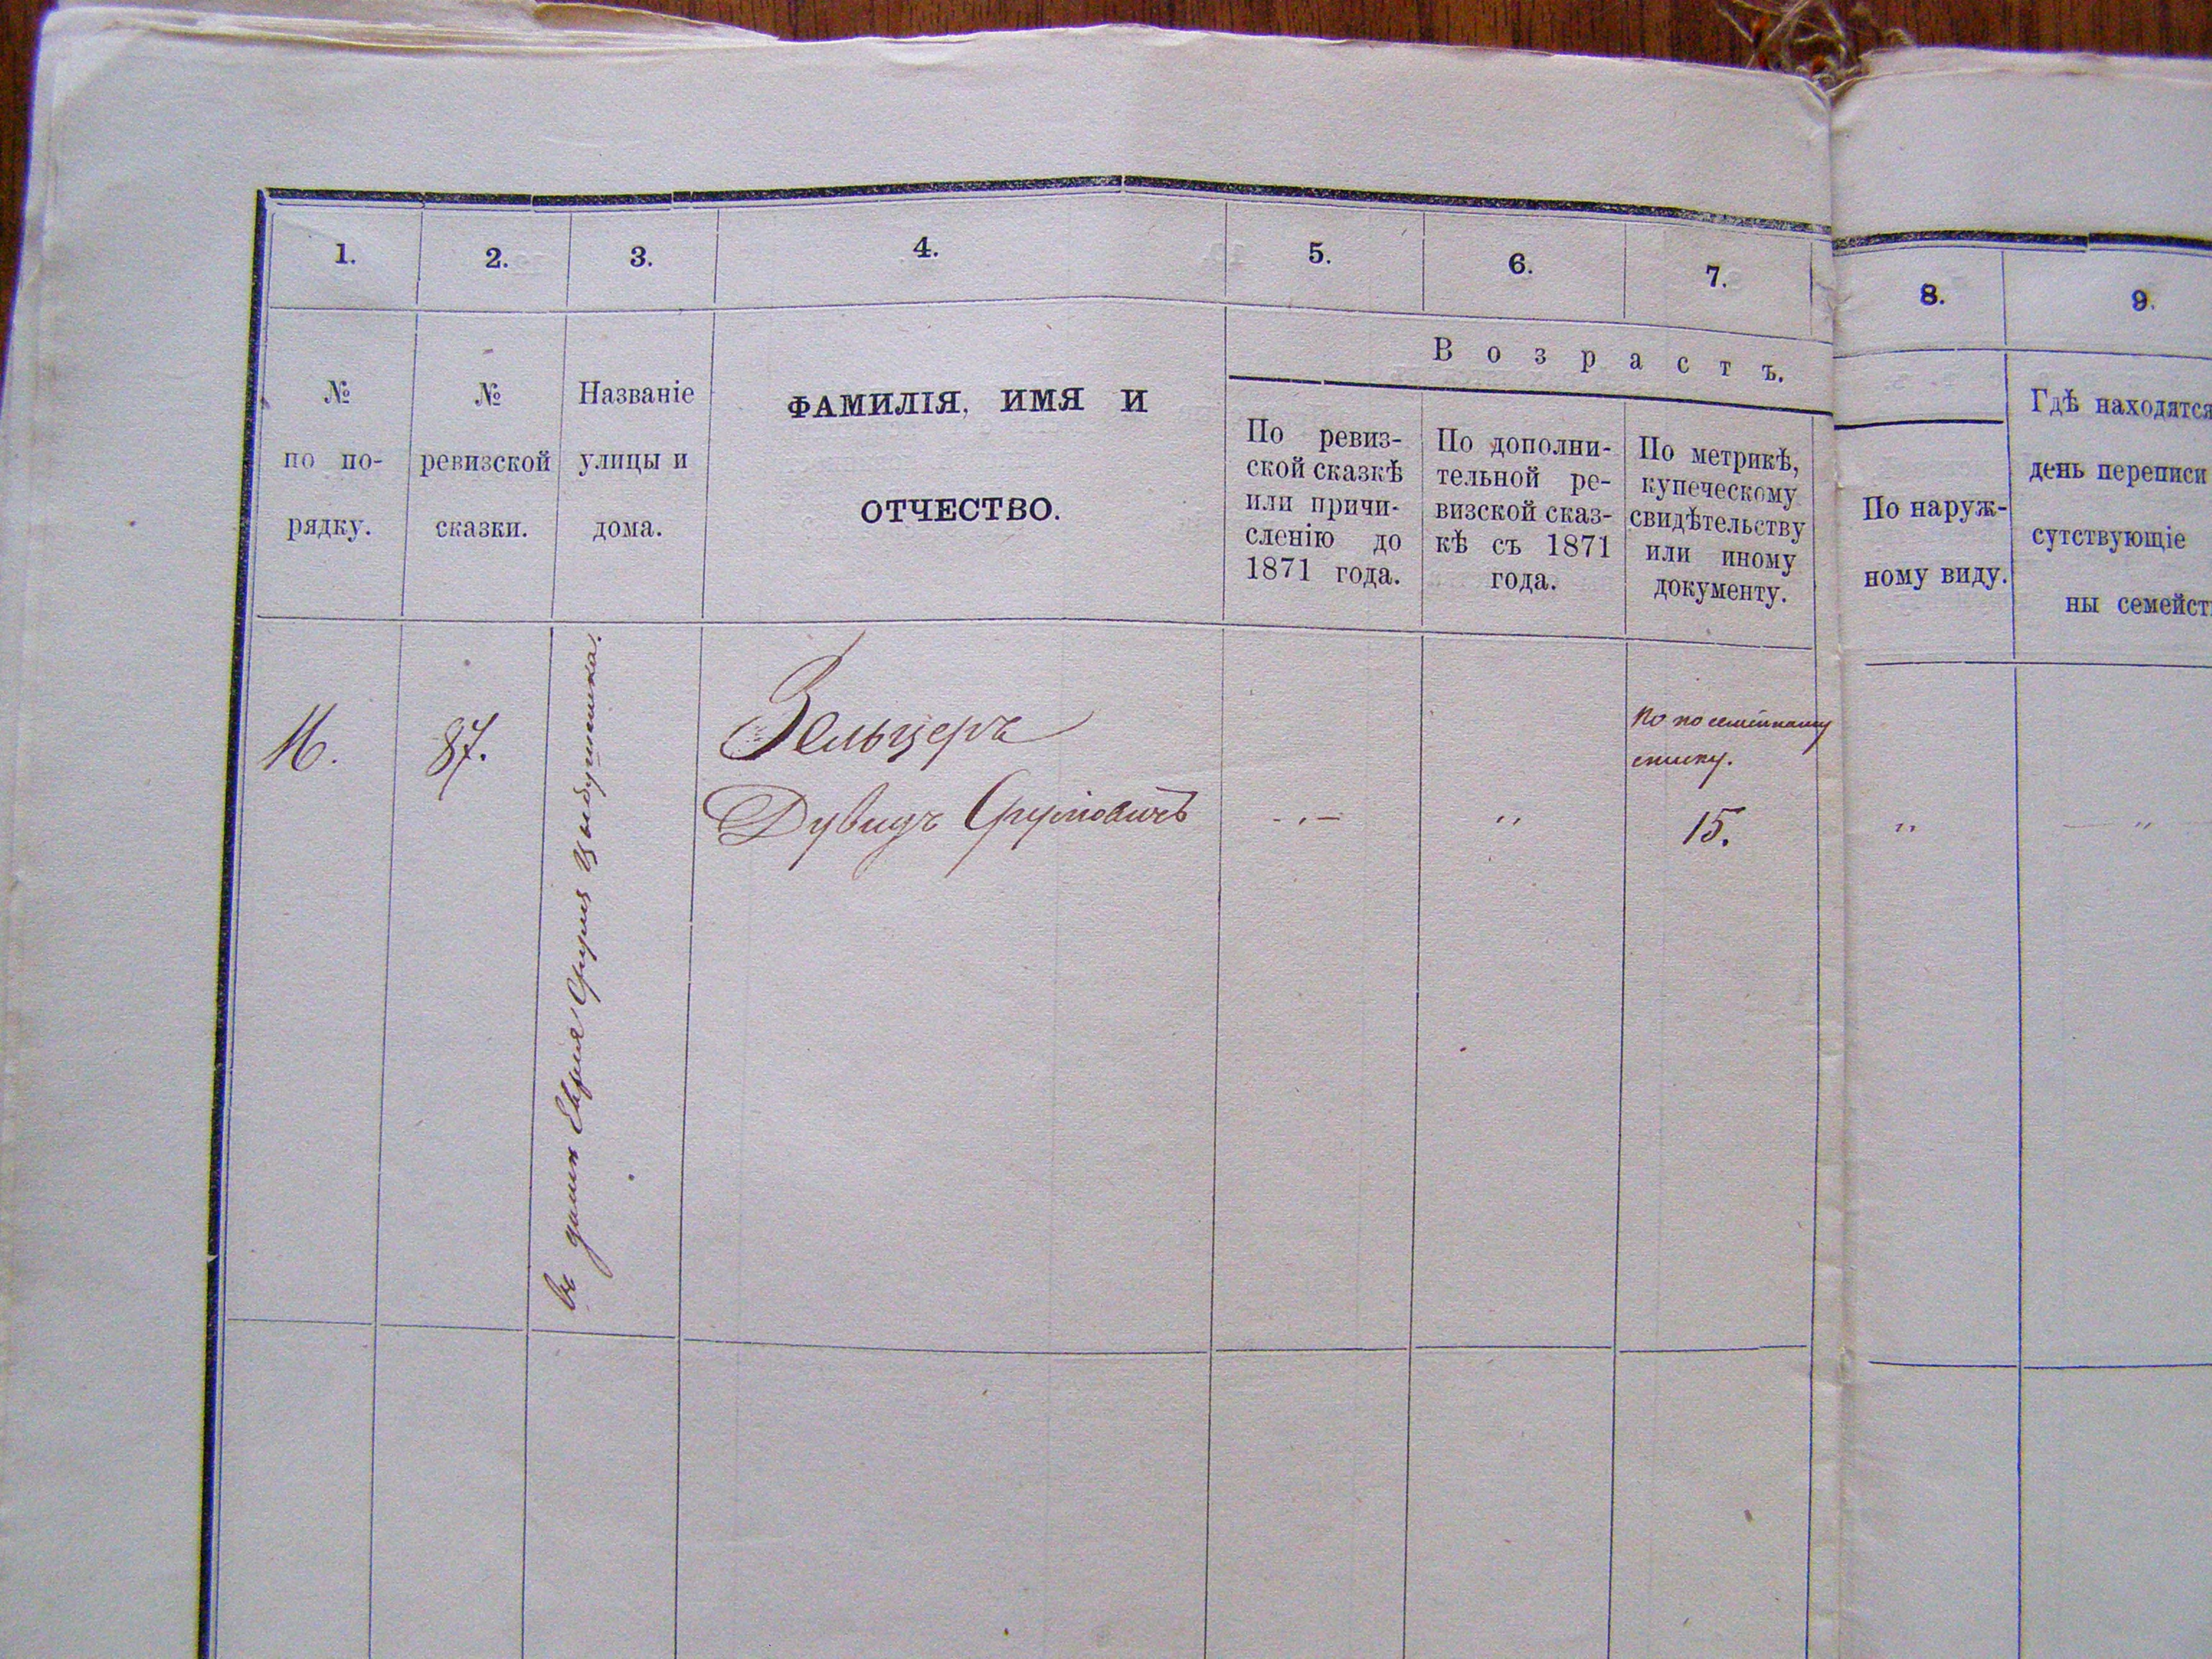 1.
2.
3.
4.
5.
6.
7.
8.
9.
№
по по-
рядку.
№
ревизской
сказки.
Названіе
улицы и
дома.
ФАМИЛІЯ, ИМЯ И
ОТЧЕСТВО.
Возрастъ.
По ревиз-
ской сказкѣ
или причи-
сленію до
1871 года.
По дополни-
тельной ре-
визской сказ-
кѣ съ 1871
года.
По метрикѣ,
купеческому
свидѣтельству
или иному
документу.
По наруж-
ному виду.
Гдѣ находятся
день переписи
сутствующіе
ны семейст
87.
въ домѣ Еврея
Зельцеръ
Дувидъ Сруловичъ
По посемейному
списку.
-"-
"
15.
"
— "